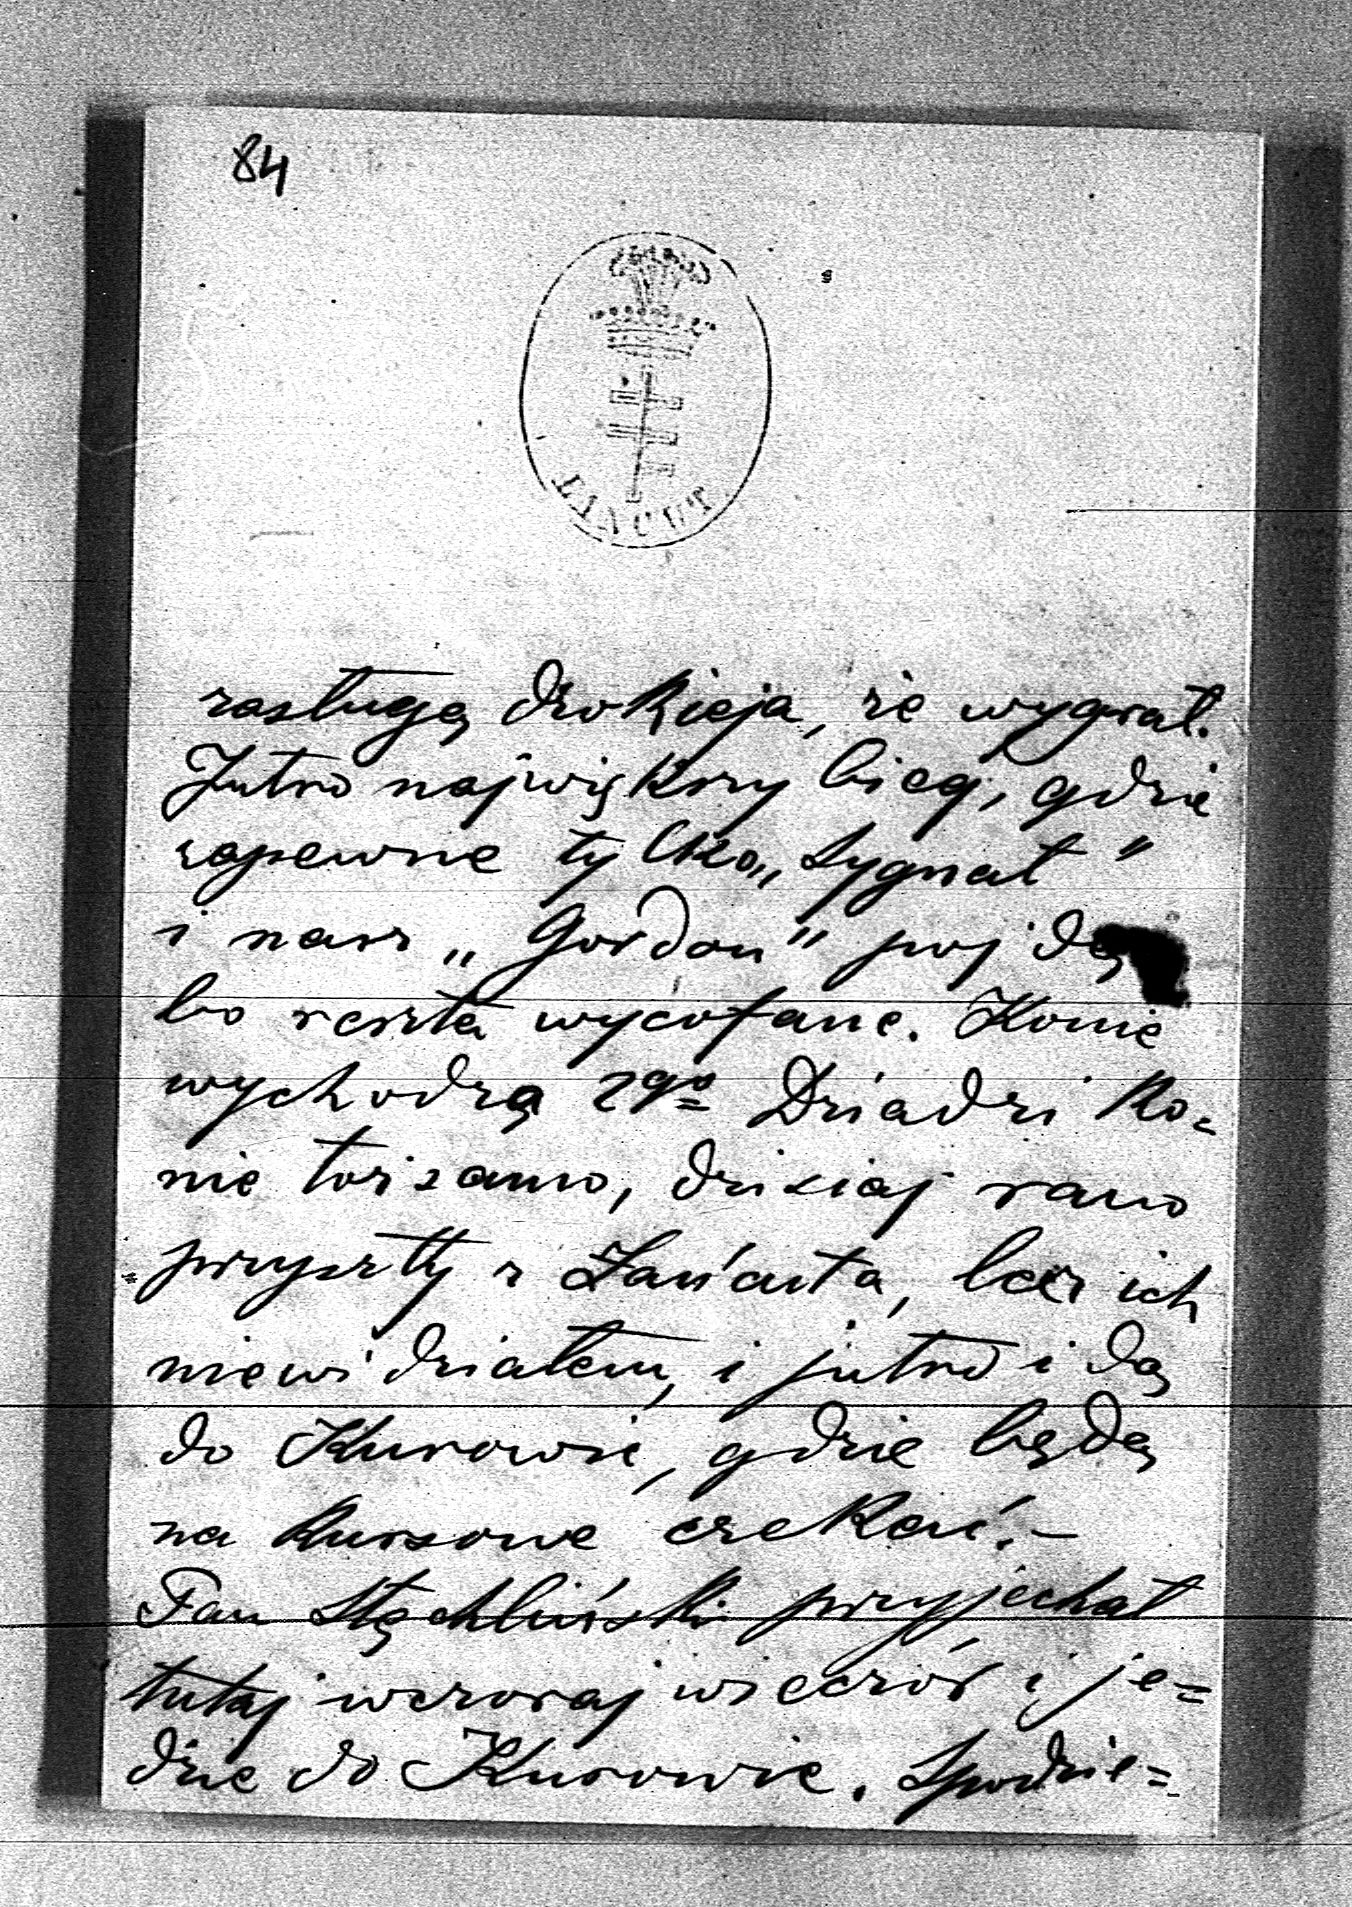 84
ŁAŃCUT
zasługą dżokieja, że wygrał.
Jutro największy bieg, gdzie
zapewne tylko „Sygnał"
i nasz „Gordon" pójdą
bo reszta wycofane. Konie
wychodzą 29º Dziadzi ko-
nie toż samo, dzisiaj rano
przyszły z Łańcuta, lecz ich
niewidziałem, i jutro idą
do Kurowic, gdzie będą
na kursowe czekać. –
Pan Stęchliński przyjechał
tutaj wczoraj wieczór i je=
dzie do Kurowic. Spodzie=